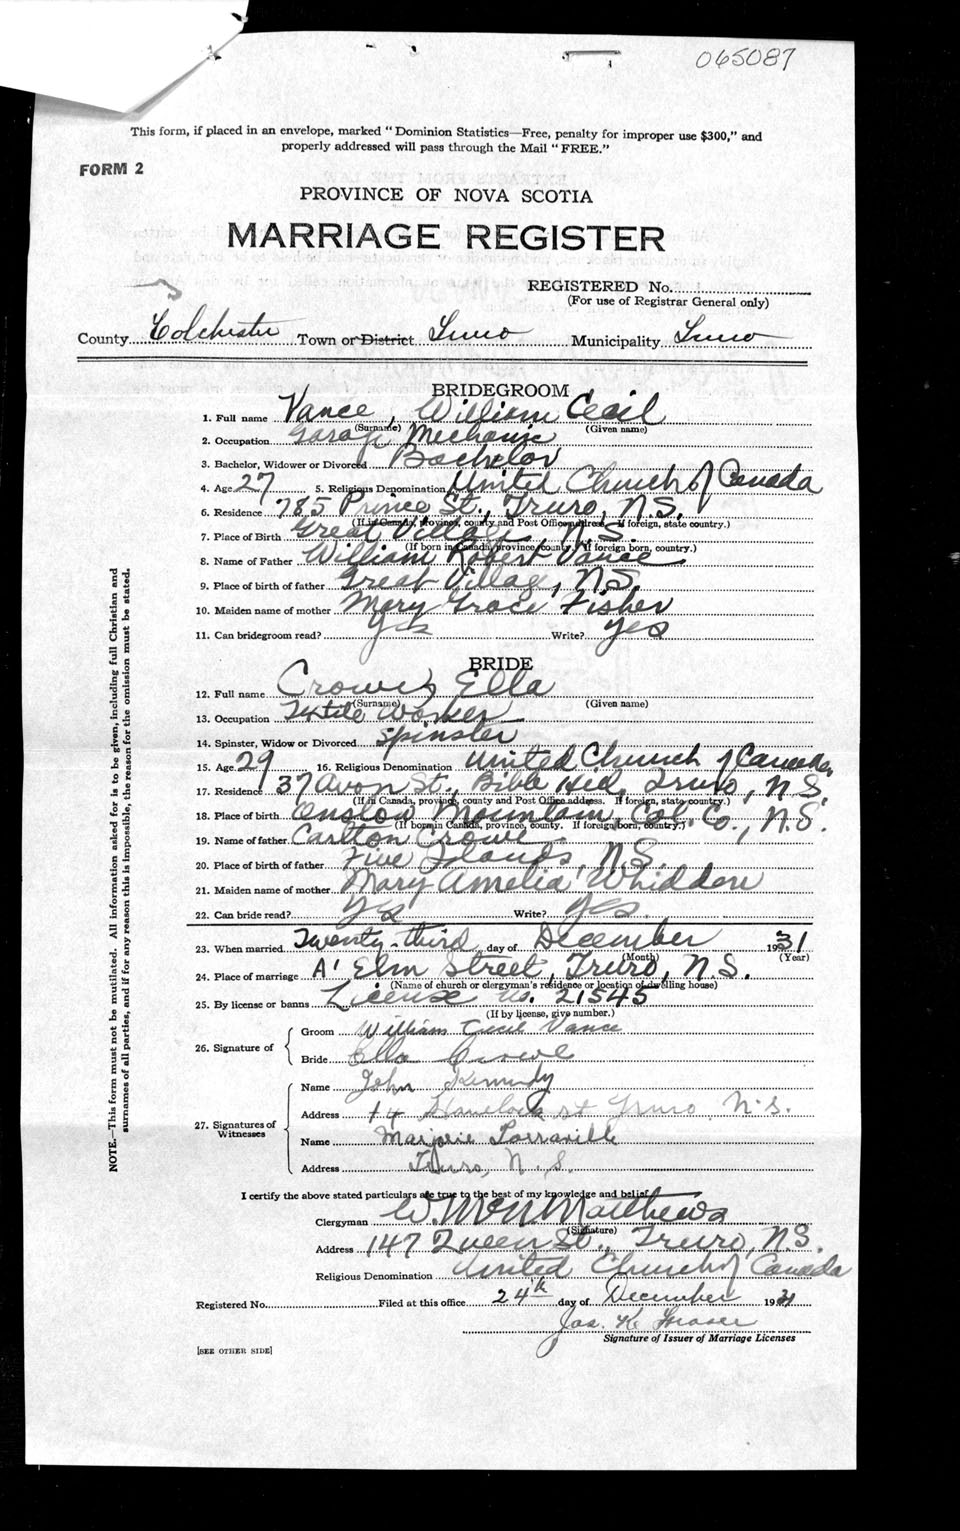 065087
This form, if placed in an envelope, marked "Dominion Statistics—Free, penalty for improper use $300," and
properly addressed will pass through the Mail "FREE."
FORM 2
PROVINCE OF NOVA SCOTIA
MARRIAGE REGISTER
REGISTERED No.
(For use of Registrar General only)
County Colchester Town or District Truro Municipality Truro
BRIDEGROOM
1. Full name Vance, William Cecil
(Surname) (Given name)
2. Occupation Garage Mechanic
3. Bachelor, Widower or Divorced Bachelor
4. Age 27 5. Religious Denomination United Church of Canada
6. Residence 785 Prince St., Truro, N.S.
(If in Canada, province, county and Post Office address. If foreign, state country.)
7. Place of Birth Great Village, N.S.
(If born in Canada, province, county. If foreign born, country.)
8. Name of Father William Robert Vance
9. Place of birth of father Great Village, N.S.
10. Maiden name of mother Mary Grace Fisher
11. Can bridegroom read? Yes Write? Yes
BRIDE
12. Full name Crowe, Ella
(Surname) (Given name)
13. Occupation Textile Worker
14. Spinster, Widow or Divorced Spinster
15. Age 29 16. Religious Denomination United Church of Canada
17. Residence 37 Avon St., Bible Hill, Truro, N.S.
(If in Canada, province, county and Post Office address. If foreign, state country.)
18. Place of birth Onslow Mountain, Col. Co., N.S.
(If born in Canada, province, county. If foreign born, country.)
19. Name of father Carlton Crowe
20. Place of birth of father Five Islands, N.S.
21. Maiden name of mother Mary Amelia Whidden
22. Can bride read? Yes Write? Yes.
23. When married Twenty-third day of December 1931
(Month) (Year)
24. Place of marriage At Elm Street, Truro, N.S.
(Name of church or clergyman's residence or location of dwelling house)
25. By license or banns License no. 21545
(If by license, give number.)
26. Signature of
Groom William Cecil Vance
Bride Ella Crowe
27. Signatures of Witnesses
Name John Kennedy
Address 14 Havelock st Truro, N.S.
Name Marjorie
Address Truro, N.S.
I certify the above stated particulars are true to the best of my knowledge and belief.
Clergyman Matthews
(Signature)
Address 147 Queen St., Truro, N.S.
Religious Denomination United Church of Canada
Registered No. Filed at this office 24th day of December 1931
Jas. K. Fraser
Signature of Issuer of Marriage Licenses
[SEE OTHER SIDE]
NOTE.—This form must not be mutilated. All information asked for is to be given, including full Christian and
surnames of all parties, and if for any reason this is impossible, the reason for the omission must be stated.